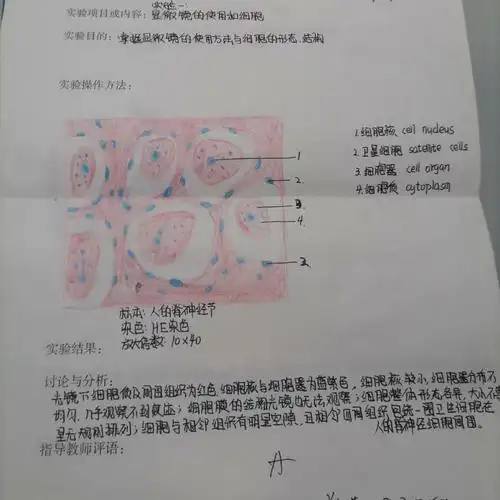 实验一
实验项目或内容：显微镜的使用和细胞
实验目的：掌握显微镜的使用方法与细胞的形态、结构
实验操作方法：
1
2.
3.
4.
2.
1.细胞核 cell nucleus
2.卫星细胞 satellite cells
3.细胞器 cell organ
4.细胞质 cytoplasm
标本：人的脊神经节
染色：HE染色
放大倍数：10×40
实验结果：
讨论与分析：
光镜下细胞质及周围组织为红色，细胞核与细胞器为蓝紫色，细胞核较小，细胞器分布不
均匀，几乎观察不到；细胞膜的结构光镜也无法观察；细胞整体形态各异，大小不
呈无规则排列；细胞与相邻组织有明显空隙，且相邻周围组织包绕一圈卫星细胞在
人的脊神经细胞周围。
指导教师评语：
A